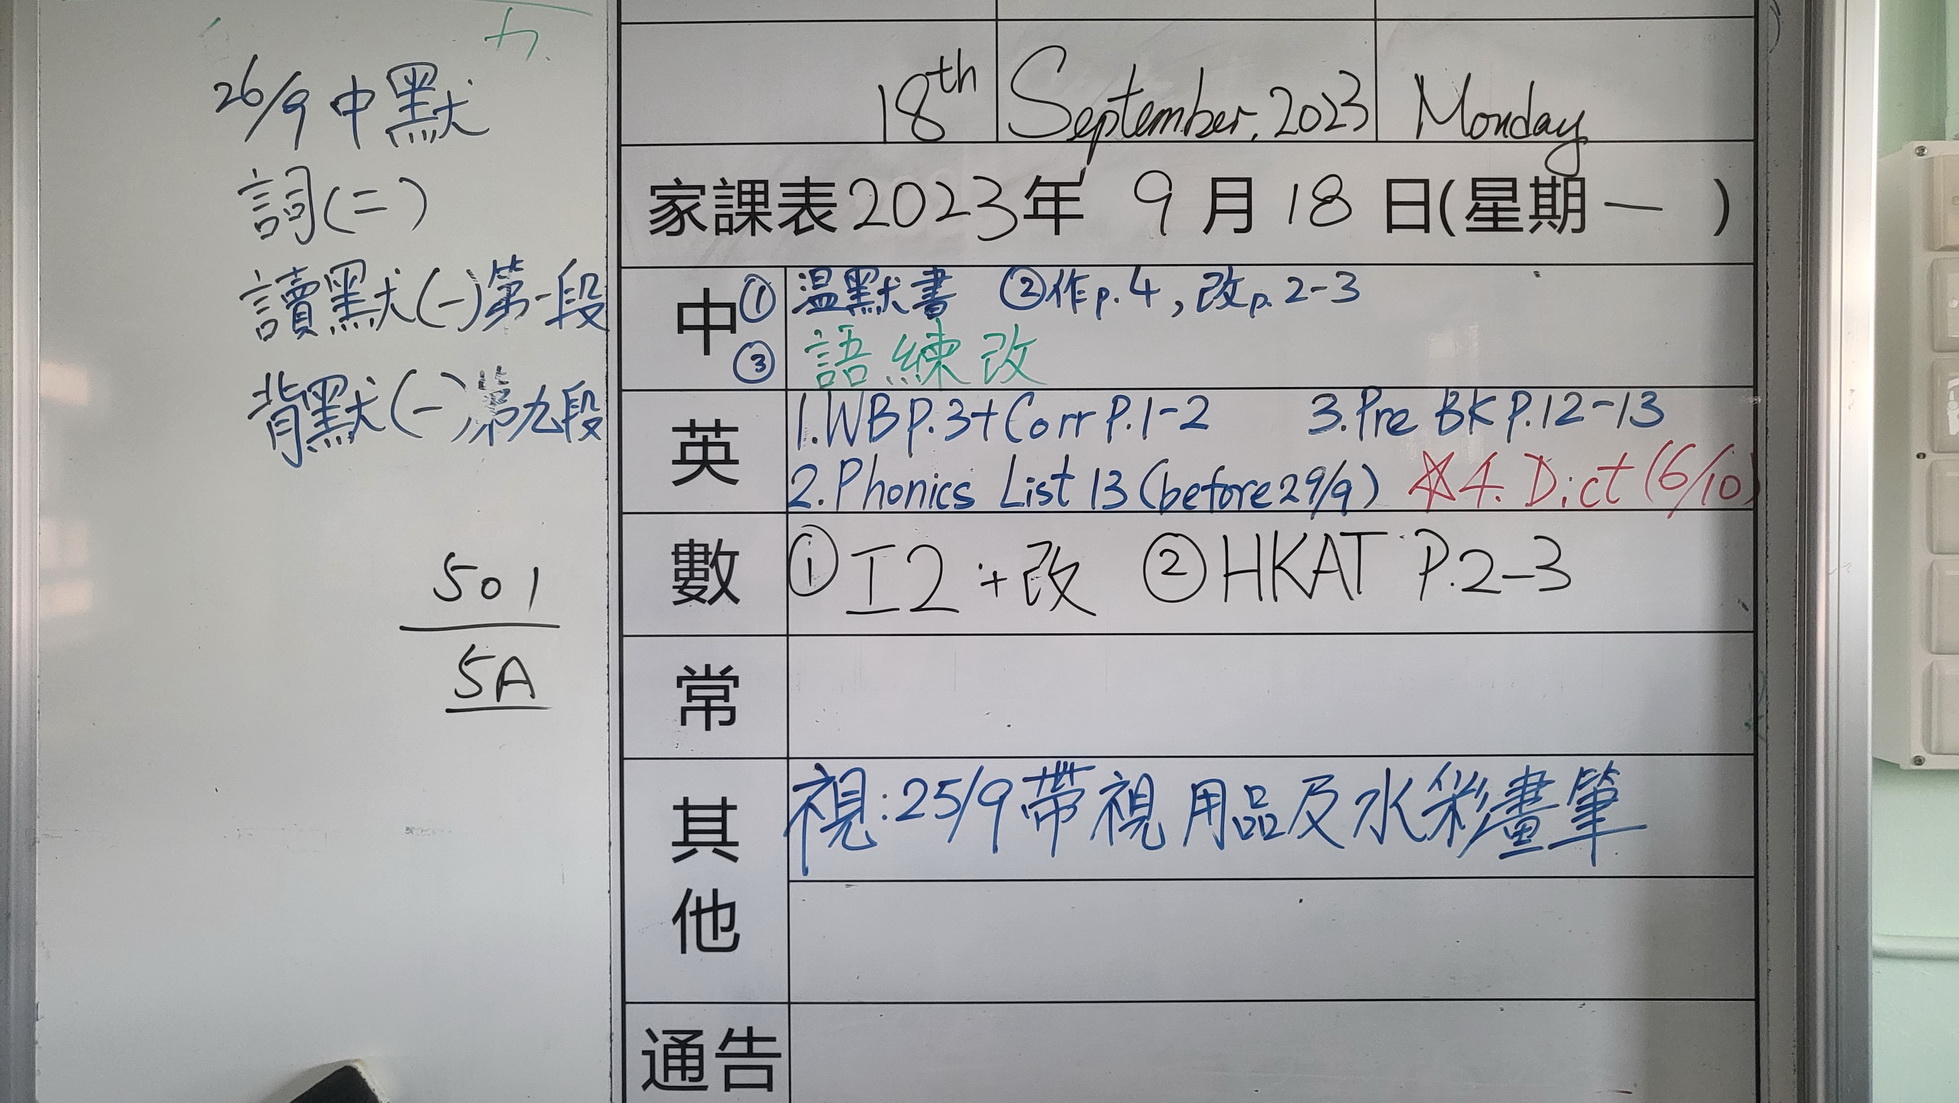 26/9 中默
詞(二)
讀默(一)第一段
背默(一)第九段
501
5A
18th September, 2023 Monday
家課表2023年 9月18日(星期一 )
中 ① 温默書 ②作p.4,改p.2-3
③ 語練改
英 1.WBP.3+Corr P.1-2 3.Pre BK P.12-13
2.Phonics List 13 (before 29/9) ☆4. Dict (6/10)
數 ① I2 + 改 ② HKAT P.2-3
常
其他 視:25/9帶視用品及水彩畫筆
通告